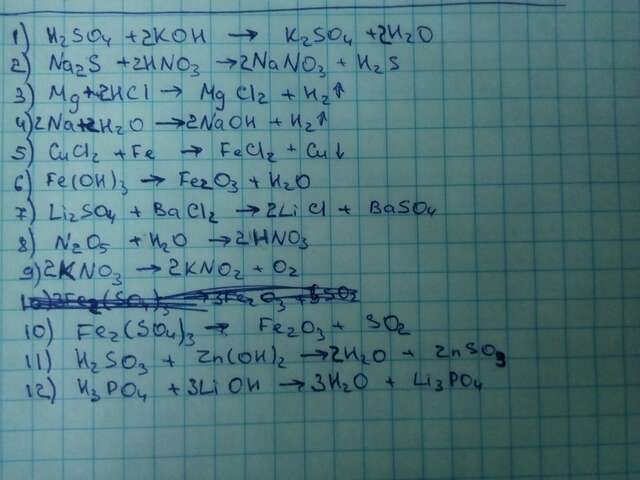 1) H₂SO₄ + 2KOH → K₂SO₄ + 2H₂O
2) Na₂S + 2HNO₃ → 2NaNO₃ + H₂S
3) Mg + 2HCl → MgCl₂ + H₂↑
4) 2Na + 2H₂O → 2NaOH + H₂↑
5) CuCl₂ + Fe → FeCl₂ + Cu↓
6) Fe(OH)₃ → Fe₂O₃ + H₂O
7) Li₂SO₄ + BaCl₂ → 2LiCl + BaSO₄
8) N₂O₅ + H₂O → 2HNO₃
9) 2KNO₃ → 2KNO₂ + O₂
10) Fe₂(SO₄)₃ → Fe₂O₃ + SO₂
11) H₂SO₃ + Zn(OH)₂ → 2H₂O + ZnSO₃
12) H₃PO₄ + 3LiOH → 3H₂O + Li₃PO₄